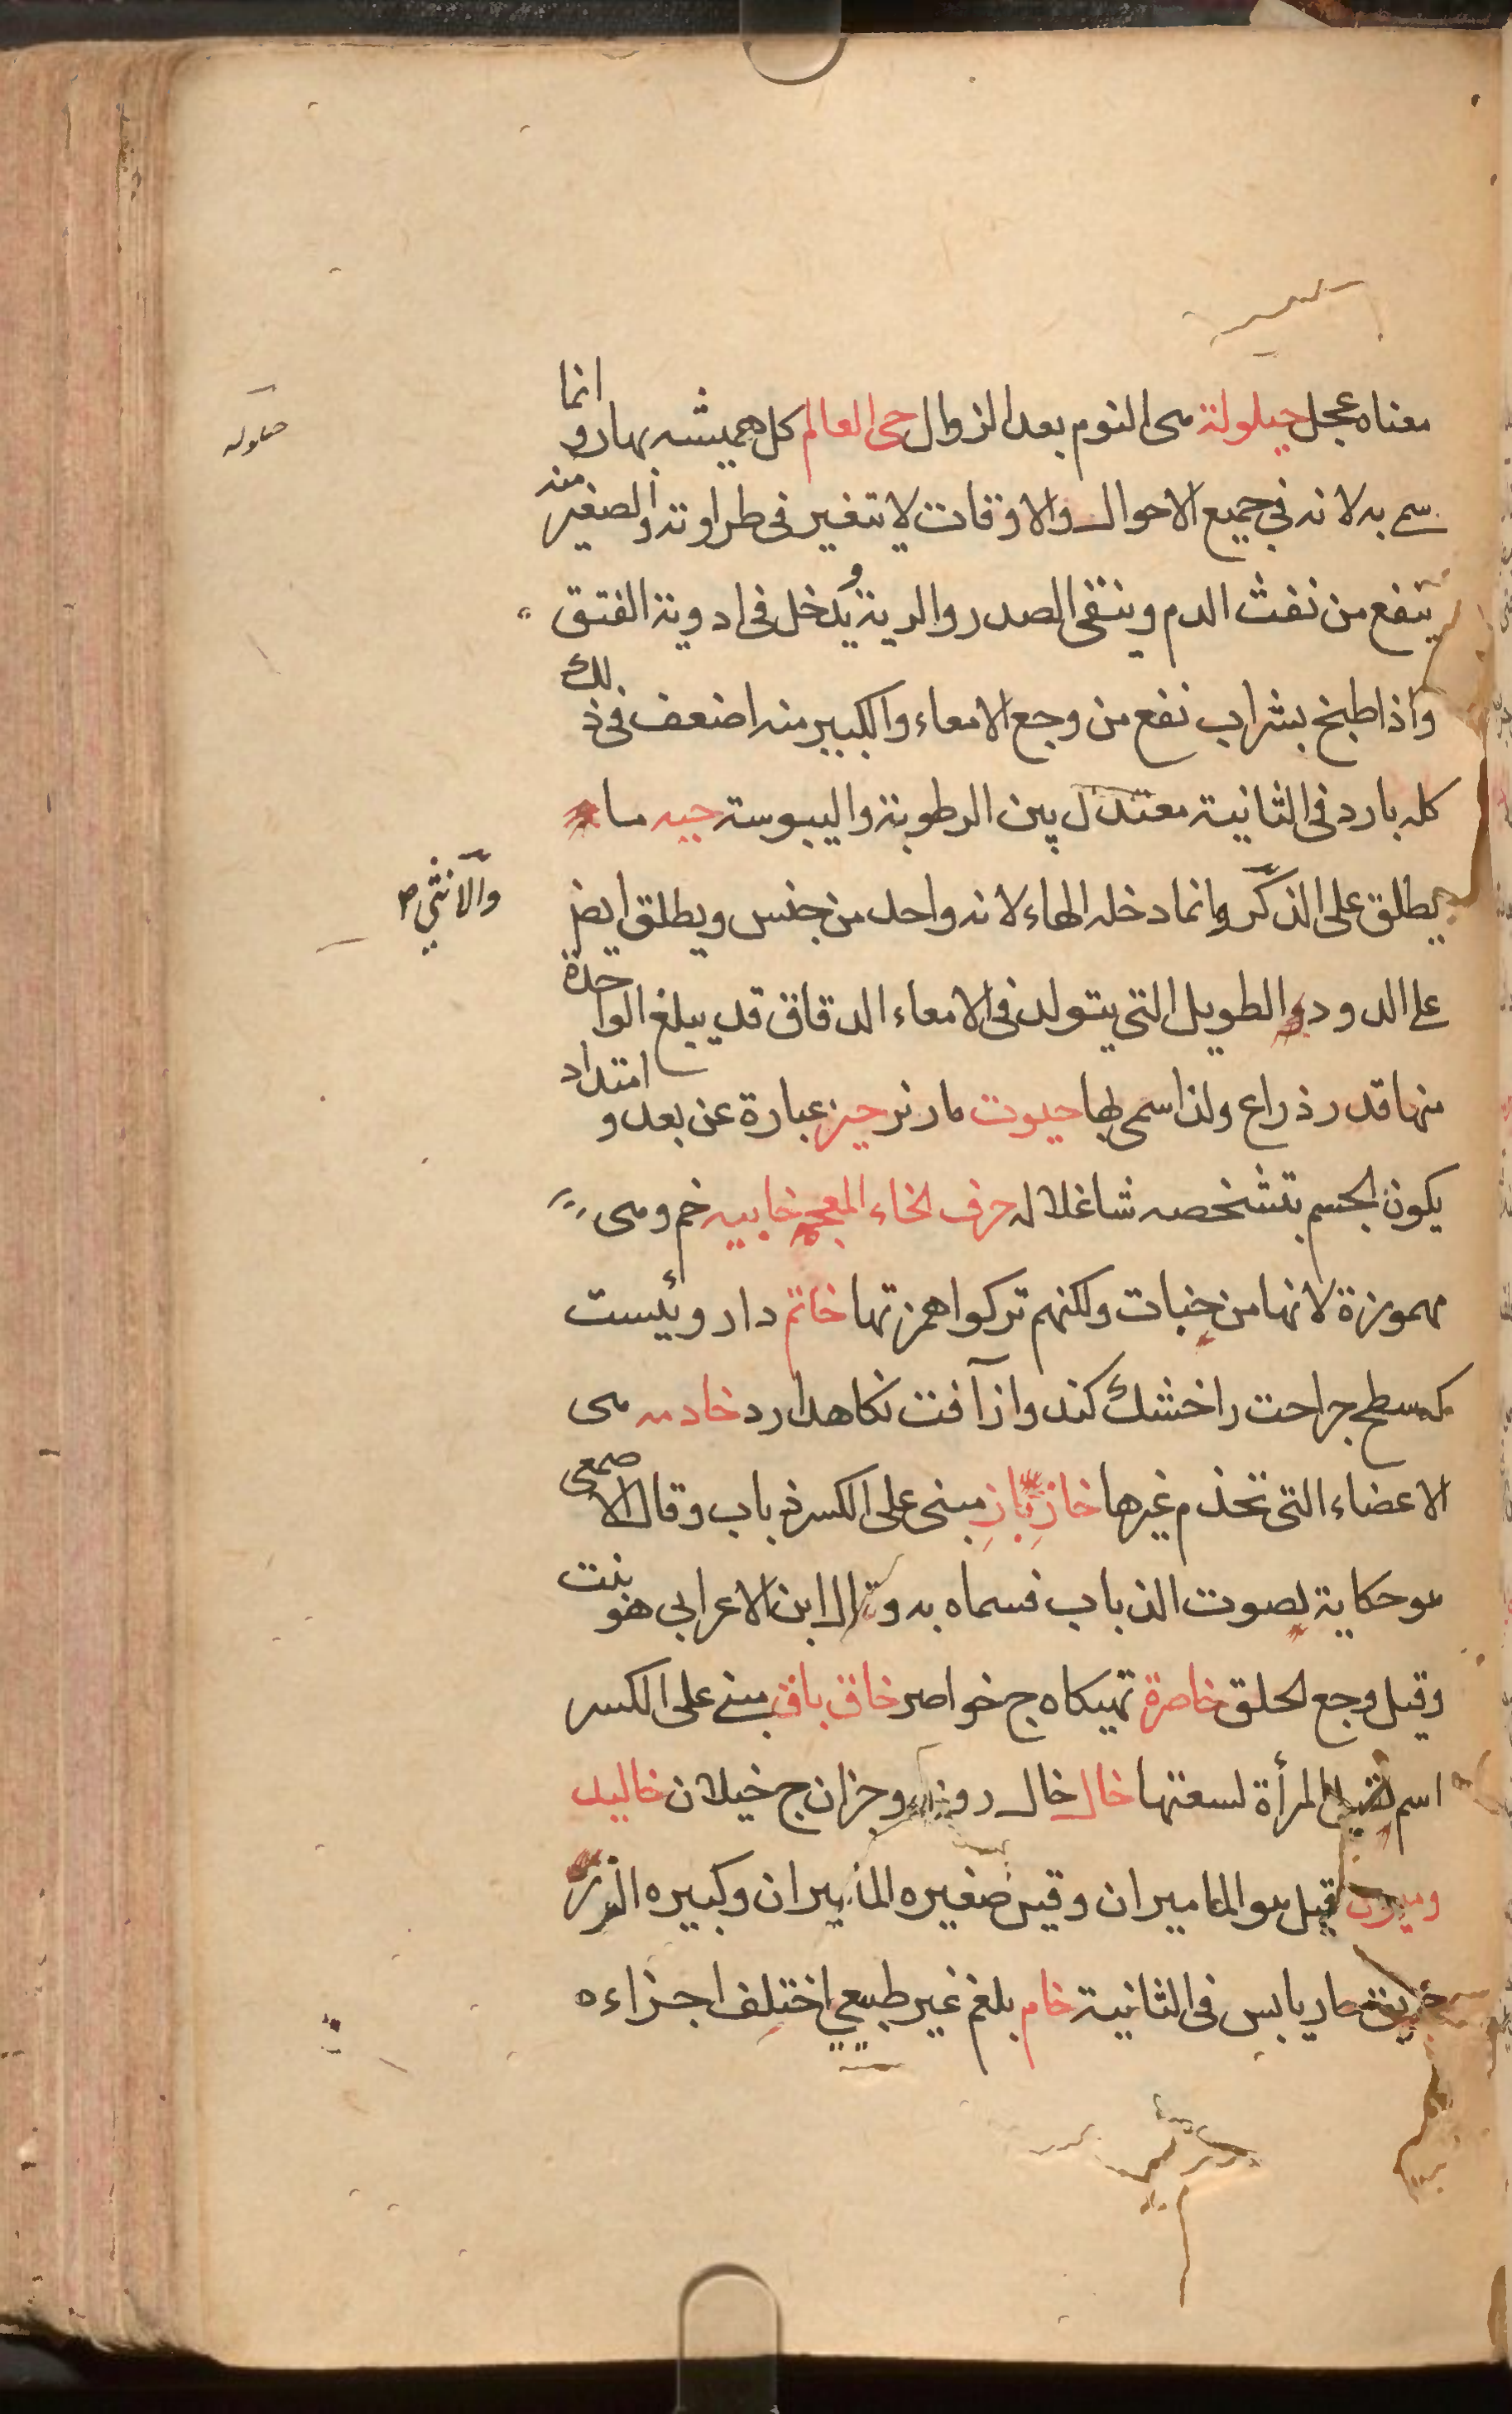 معناه عجل حيلولة هى النوم بعد الزوال حى العالم كل هميشه بهار و انما
سمى به لانه فى جميع الاحوال والاوقات لا يتغير فى طراوته والصغير منه
ينفع من نفث الدم وينقى الصدر والرية ويدخل فى ادوية الفتق
واذا طبخ بشراب نفع من وجع الامعاء والكبير منه اضعف فى ذلك
كله بارد فى الثانية معتدل بين الرطوبة واليبوسة حيه مار
يطلق على الذكر وانما دخله الهاء لانه واحد من جنس ويطلق ايضا
والانثى صح
على الدود الطويل التى يتولد فى الامعاء الدقاق قد يبلغ الواحدة
منها قدر ذراع ولذا سمى بها حيوت مار نر حيز عبارة عن بعد و امتداد
يكون الجسم بتشخصه شاغلا له حرف الخاء المعجم خابيه خم وهى
مهموزة لانها من خبات ولكنهم تركوا همزتها خاتم داروئيست
كه سطح جراحت را خشك كند واز آفت نكاهدارد خادمه هى
الاعضاء التى تخدم غيرها خازباز مبنى على الكسر ذباب وقال الاصمعى
هو حكاية لصوت الذباب فسماه به وقال ابن الاعرابى هو نبت
وقيل وجع الحلق خاصرة تهيكاه ج خواصر خاق باق مبنى على الكسر
اسم لفرج المرأة لسعتها خال خال روى وجزان ج خيلان خاليد
ونيون قيل هو الماميران وقيل صغيره الماميران وكبيره الزرد
حار يابس فى الثانية خام بلغم غير طبيعى اختلف اجزاءه